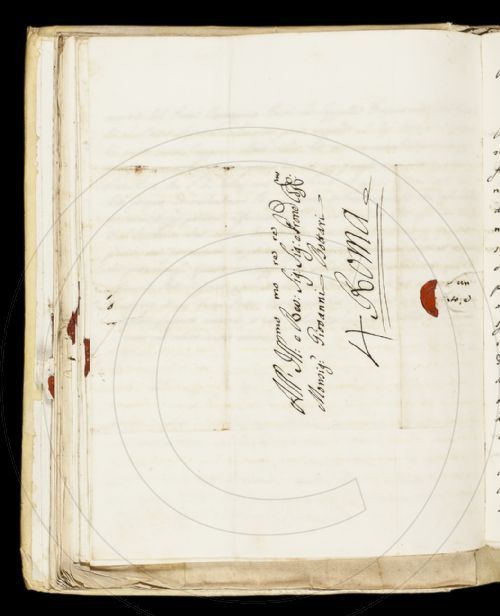 All' Ill:mo e Rev:mo Sig:re Sig:re e Prone Col:mo
Monsig:r Giovanni Bottari
4 Roma